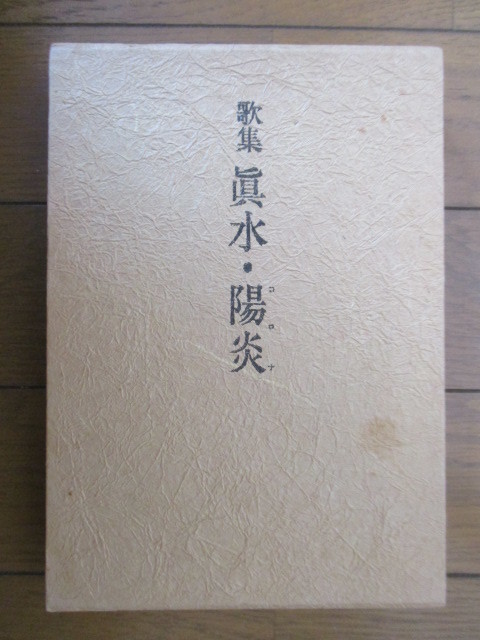 歌集 眞水・陽炎
コロナ